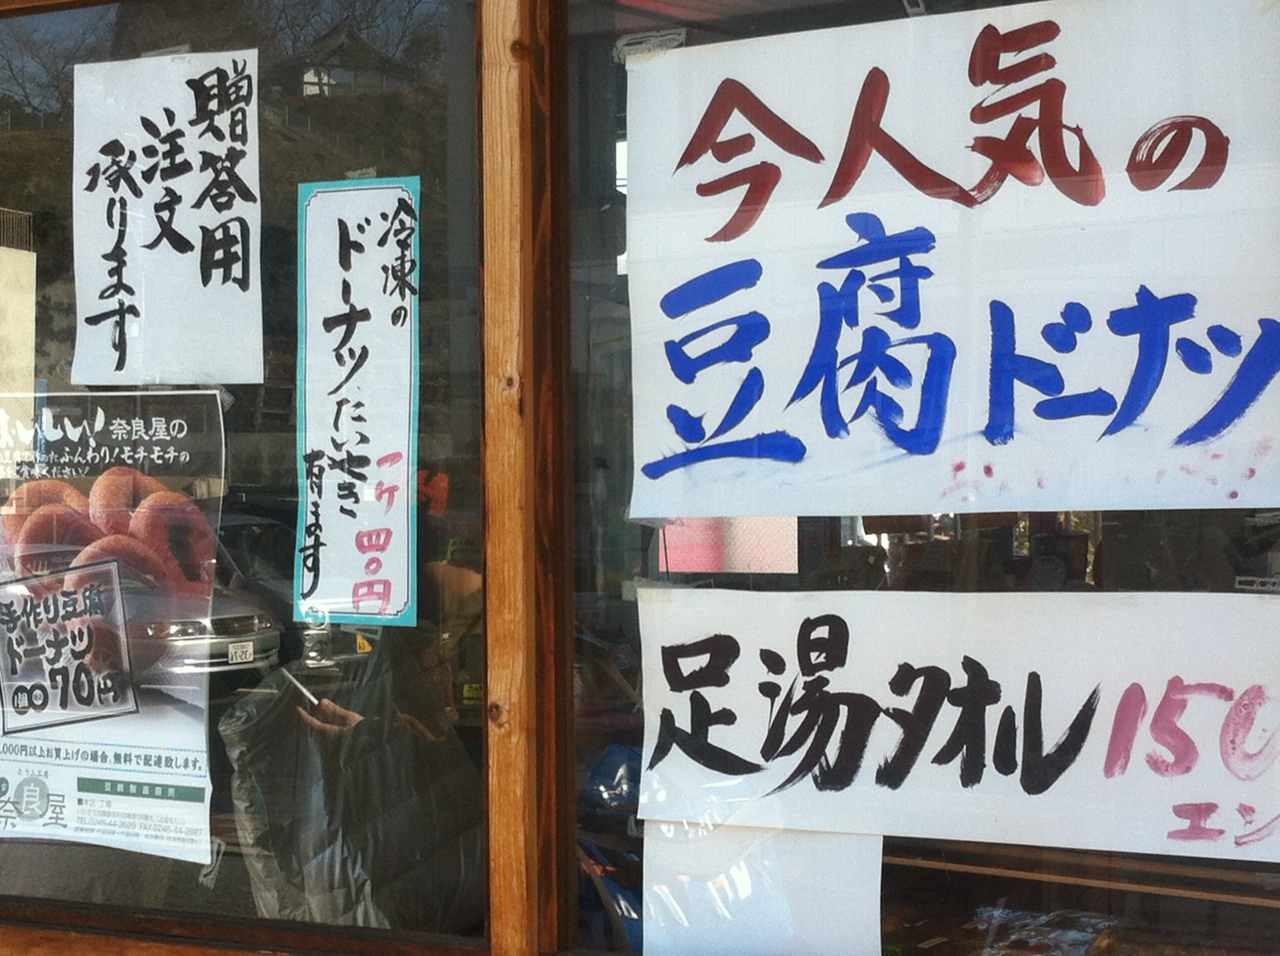 贈答用
注文
承ります
冷凍の
ドーナツたいやき
有ます
一ケ 四〇円
今人気の
豆腐ドーナツ
足湯タオル 150
エン
おいしい! 奈良屋の
ふんわり!モチモチの
手作り豆腐
ドーナツ
1個 70円
,000円以上お買上げの場合、無料で配達致します。
とうふ工房
奈良屋
豆腐製造直売
■本店 工場
TEL0246-44-2629 FAX0246-44-2887